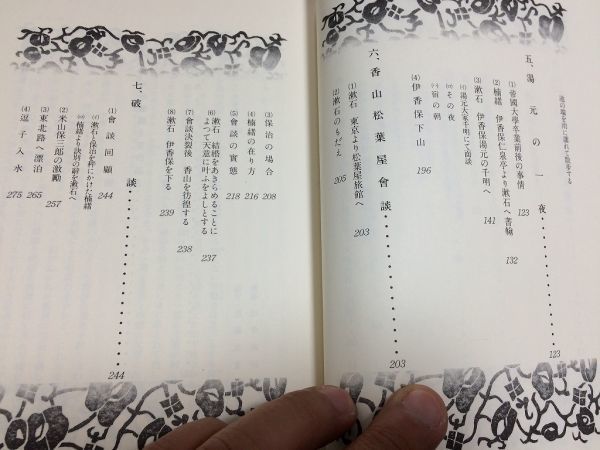 逢の場を用に連れて散歩する
五、湯元の一夜・・・・・・・・・・・・・・・・123
(1) 帝國大學卒業前後の事情 123
(2) 楠緒 伊香保仁泉亭より漱石へ書翰 132
(3) 漱石 伊香保湯元の千明へ 141
(イ) 湯元大家千明にて面談
(ロ) その夜
(ハ) 宿の朝
(4) 伊香保下山 196
六、香山松葉屋會談・・・・・・・・・・203
(1) 漱石 東京より松葉屋旅館へ 203
(2) 漱石のもだえ 205
(3) 保治の場合 208
(4) 楠緒の在り方 216
(5) 會談の實態 218
(6) 漱石 結婚をあきらめることに
よつて天意に叶ふをよしとする 237
(7) 會談決裂後 香山を彷徨する 238
(8) 漱石 伊香保を下る 239
七、破談・・・・・・・・・・・・・・・・244
(1) 會談回顧 244
(イ) 漱石と保治を秤にかけた楠緒
(ロ) 楠緒より訣別の辭を漱石へ
(2) 米山保三郎の激勵 257
(3) 東北路へ漂泊 265
(4) 逗子入水 275